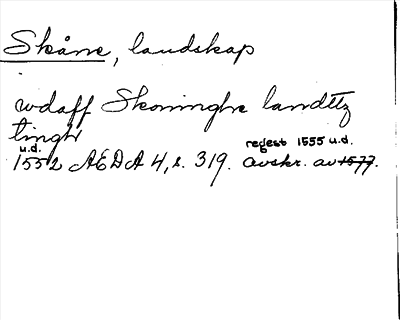 Skåne, landskap
wdaff Skoninghe landttz
tingh
u.d. regest 1555 u.d.
1552 AEDA 4, s. 319. avskr. av 1577.